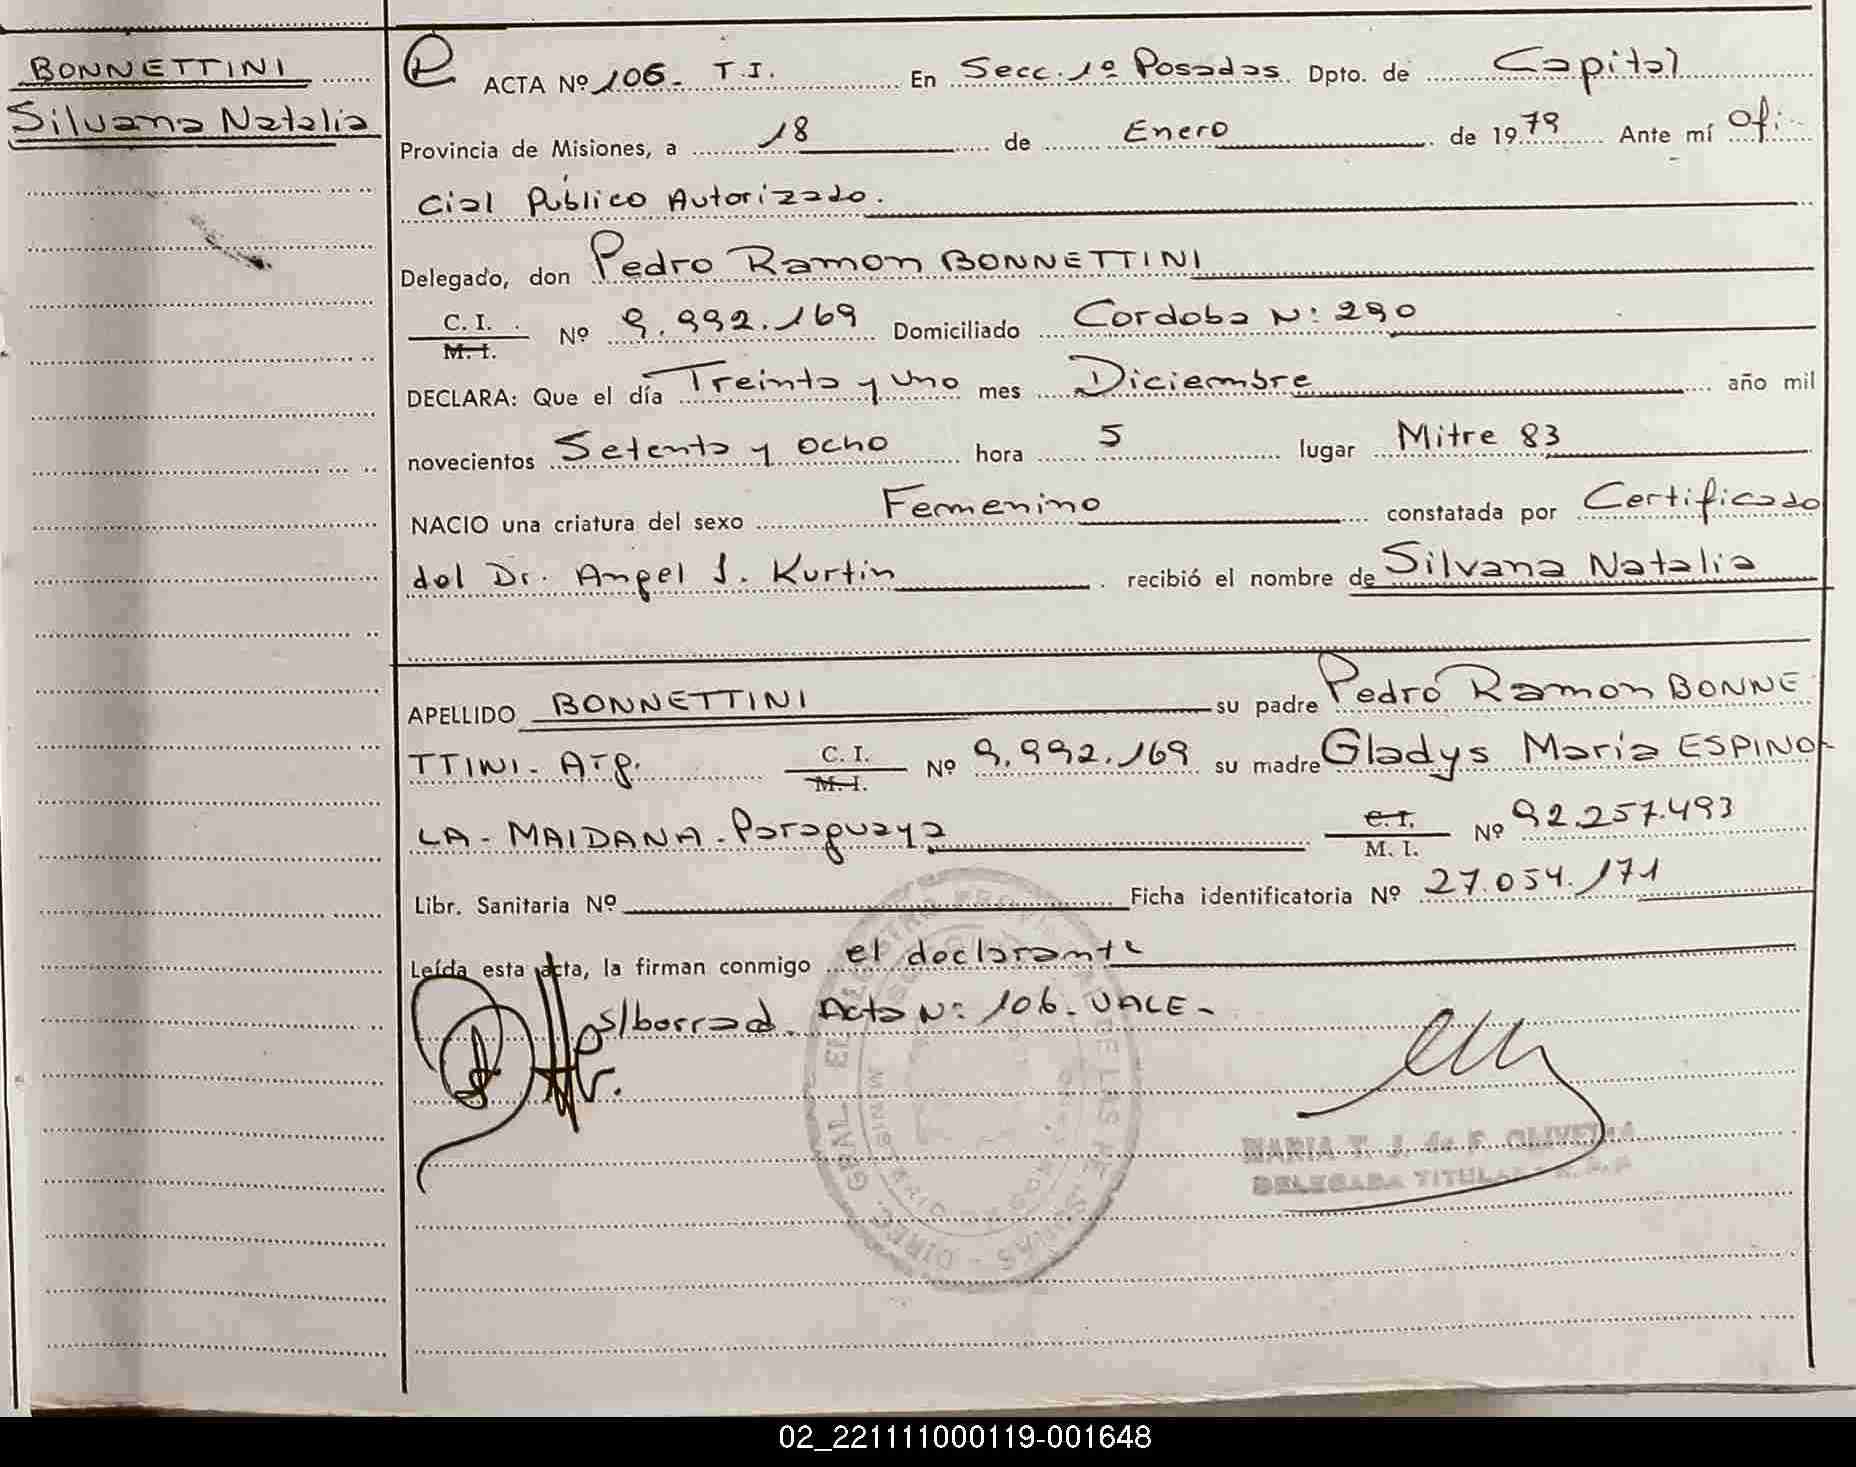 BONNETTINI
Silvana Natalia
ACTA Nº 106- T.I. En Secc. 1º Posadas Dpto. de Capital
Provincia de Misiones, a 18 de Enero de 1979 Ante mí Ofi-
cial Público Autorizado.
Delegado, don Pedro Ramon BONNETTINI
C. I. M. I. Nº 9.992.169 Domiciliado Cordoba N: 290
DECLARA: Que el día Treinta y Uno mes Diciembre año mil
novecientos Setenta y Ocho hora 5 lugar Mitre 83
NACIO una criatura del sexo Femenino constatada por Certificado
del Dr. Angel J. Kurtin recibió el nombre de Silvana Natalia
APELLIDO BONNETTINI su padre Pedro Ramon BONNE
TTINI- Arg. C. I. M. I. Nº 9.992.169 su madre Gladys Maria ESPINO-
LA- MAIDANA- Paraguaya C. I. M. I. Nº 92.257.493
Libr. Sanitaria Nº Ficha identificatoria Nº 27.054.171
Leída esta acta, la firman conmigo el declarante
s/borrad. Acta N: 106- VALE-
MARIA T. J. de F. OLIVEIRA
DELEGADA TITULAR
02_221111000119-001648